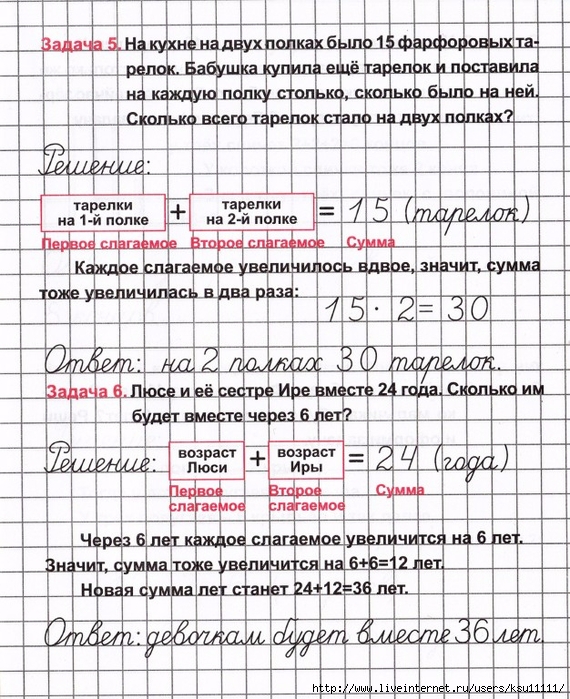 Задача 5. На кухне на двух полках было 15 фарфоровых та-
релок. Бабушка купила ещё тарелок и поставила
на каждую полку столько, сколько было на ней.
Сколько всего тарелок стало на двух полках?
Решение:
тарелки на 1-й полке + тарелки на 2-й полке = 15 (тарелок)
Первое слагаемое Второе слагаемое Сумма
Каждое слагаемое увеличилось вдвое, значит, сумма
тоже увеличилась в два раза:
15 · 2 = 30
Ответ: на 2 полках 30 тарелок.
Задача 6. Люсе и её сестре Ире вместе 24 года. Сколько им
будет вместе через 6 лет?
Решение: возраст Люси + возраст Иры = 24 (года)
Первое слагаемое Второе слагаемое Сумма
Через 6 лет каждое слагаемое увеличится на 6 лет.
Значит, сумма тоже увеличится на 6+6=12 лет.
Новая сумма лет станет 24+12=36 лет.
Ответ: девочкам будет вместе 36 лет.
http://www.liveinternet.ru/users/ksu11111/